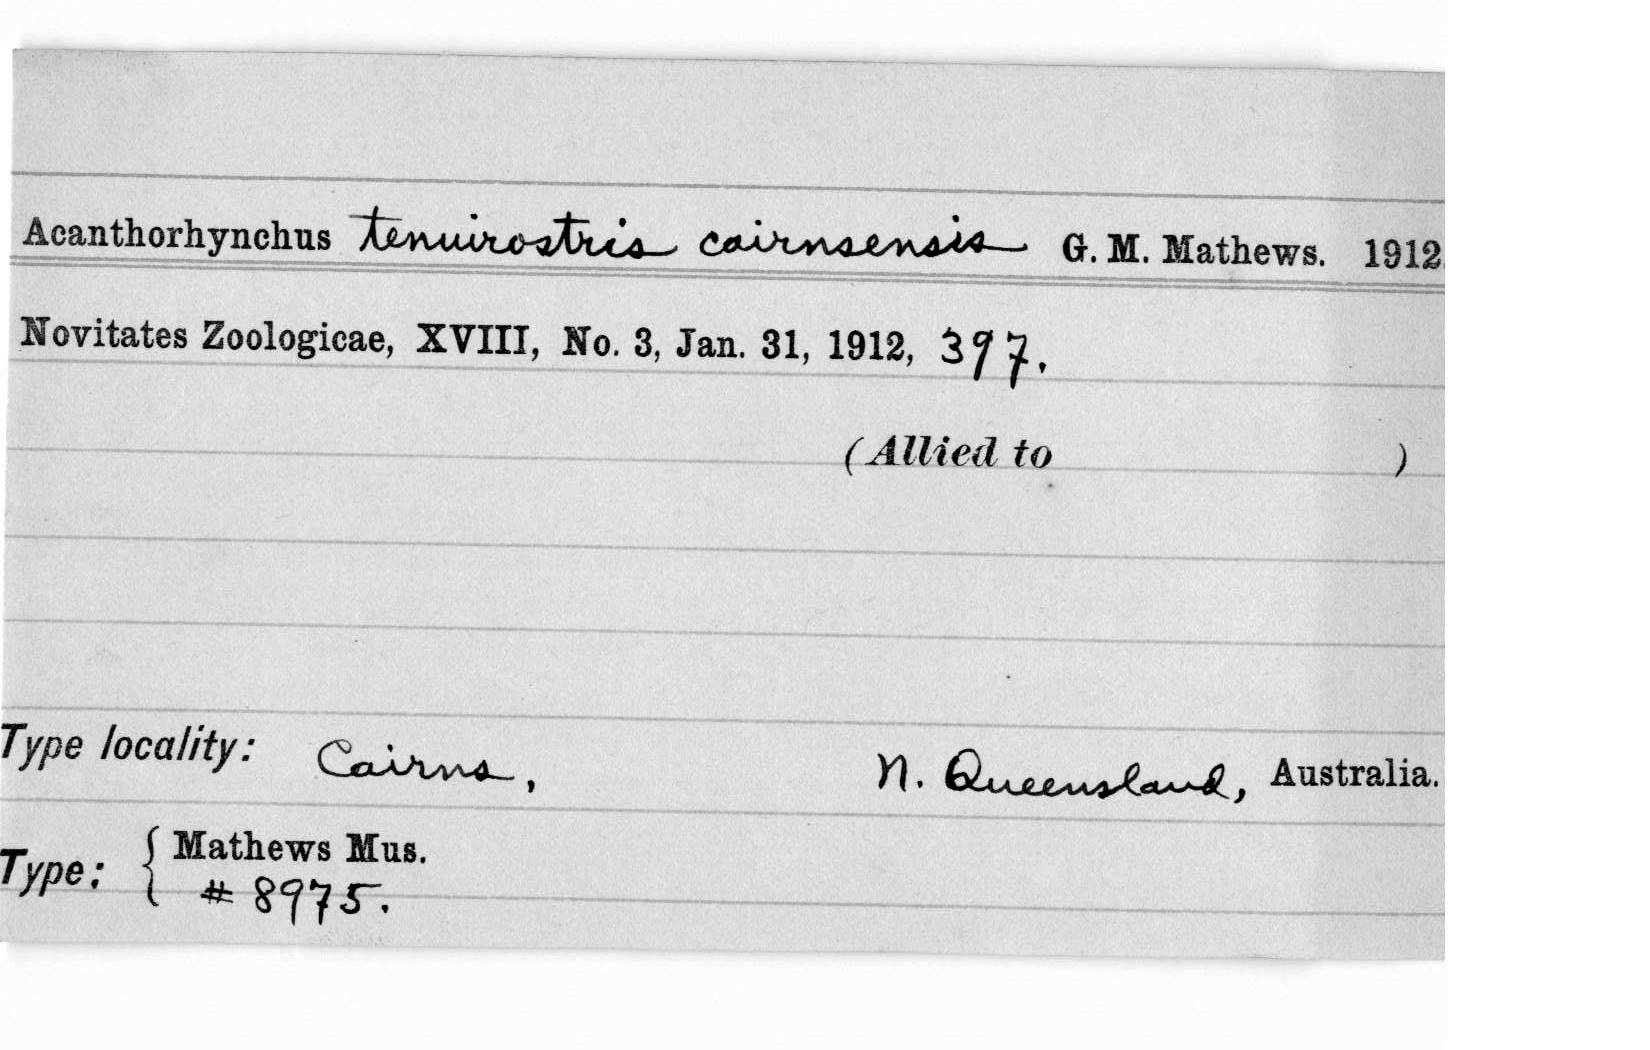 Acanthorhynchus tenuirostris cairnsensis G. M. Mathews. 1912.
Novitates Zoologicae, XVIII, No. 3, Jan. 31, 1912, 397.
(Allied to )
Type locality: Cairns, N. Queensland, Australia.
Type: { Mathews Mus.
# 8975.